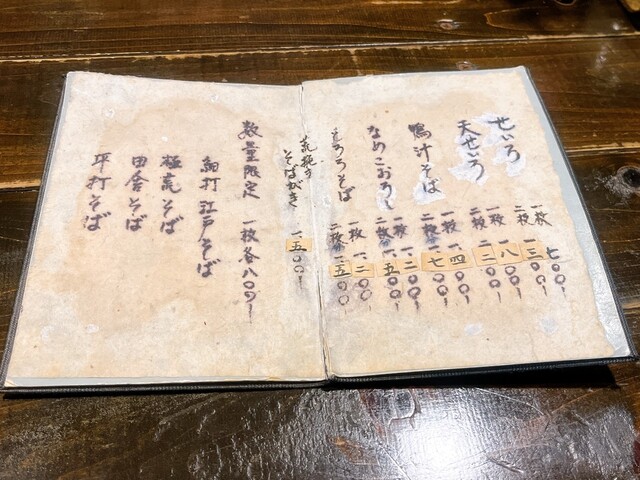 せいろ
一枚 七〇〇-
二枚 一、三〇〇-
天せいろ
一枚 一、八〇〇-
二枚 二、二〇〇-
鴨汁そば
一枚 一、四〇〇-
二枚 一、七〇〇-
なめこおろし
一枚 一、二〇〇-
二枚 一、五〇〇-
とろろそば
一枚 一、二〇〇-
二枚 一、五〇〇-
荒挽き
そばがき 一、五〇〇-
数量限定 一枚各八〇〇-
細打 江戸そば
極荒そば
田舎そば
坪打そば